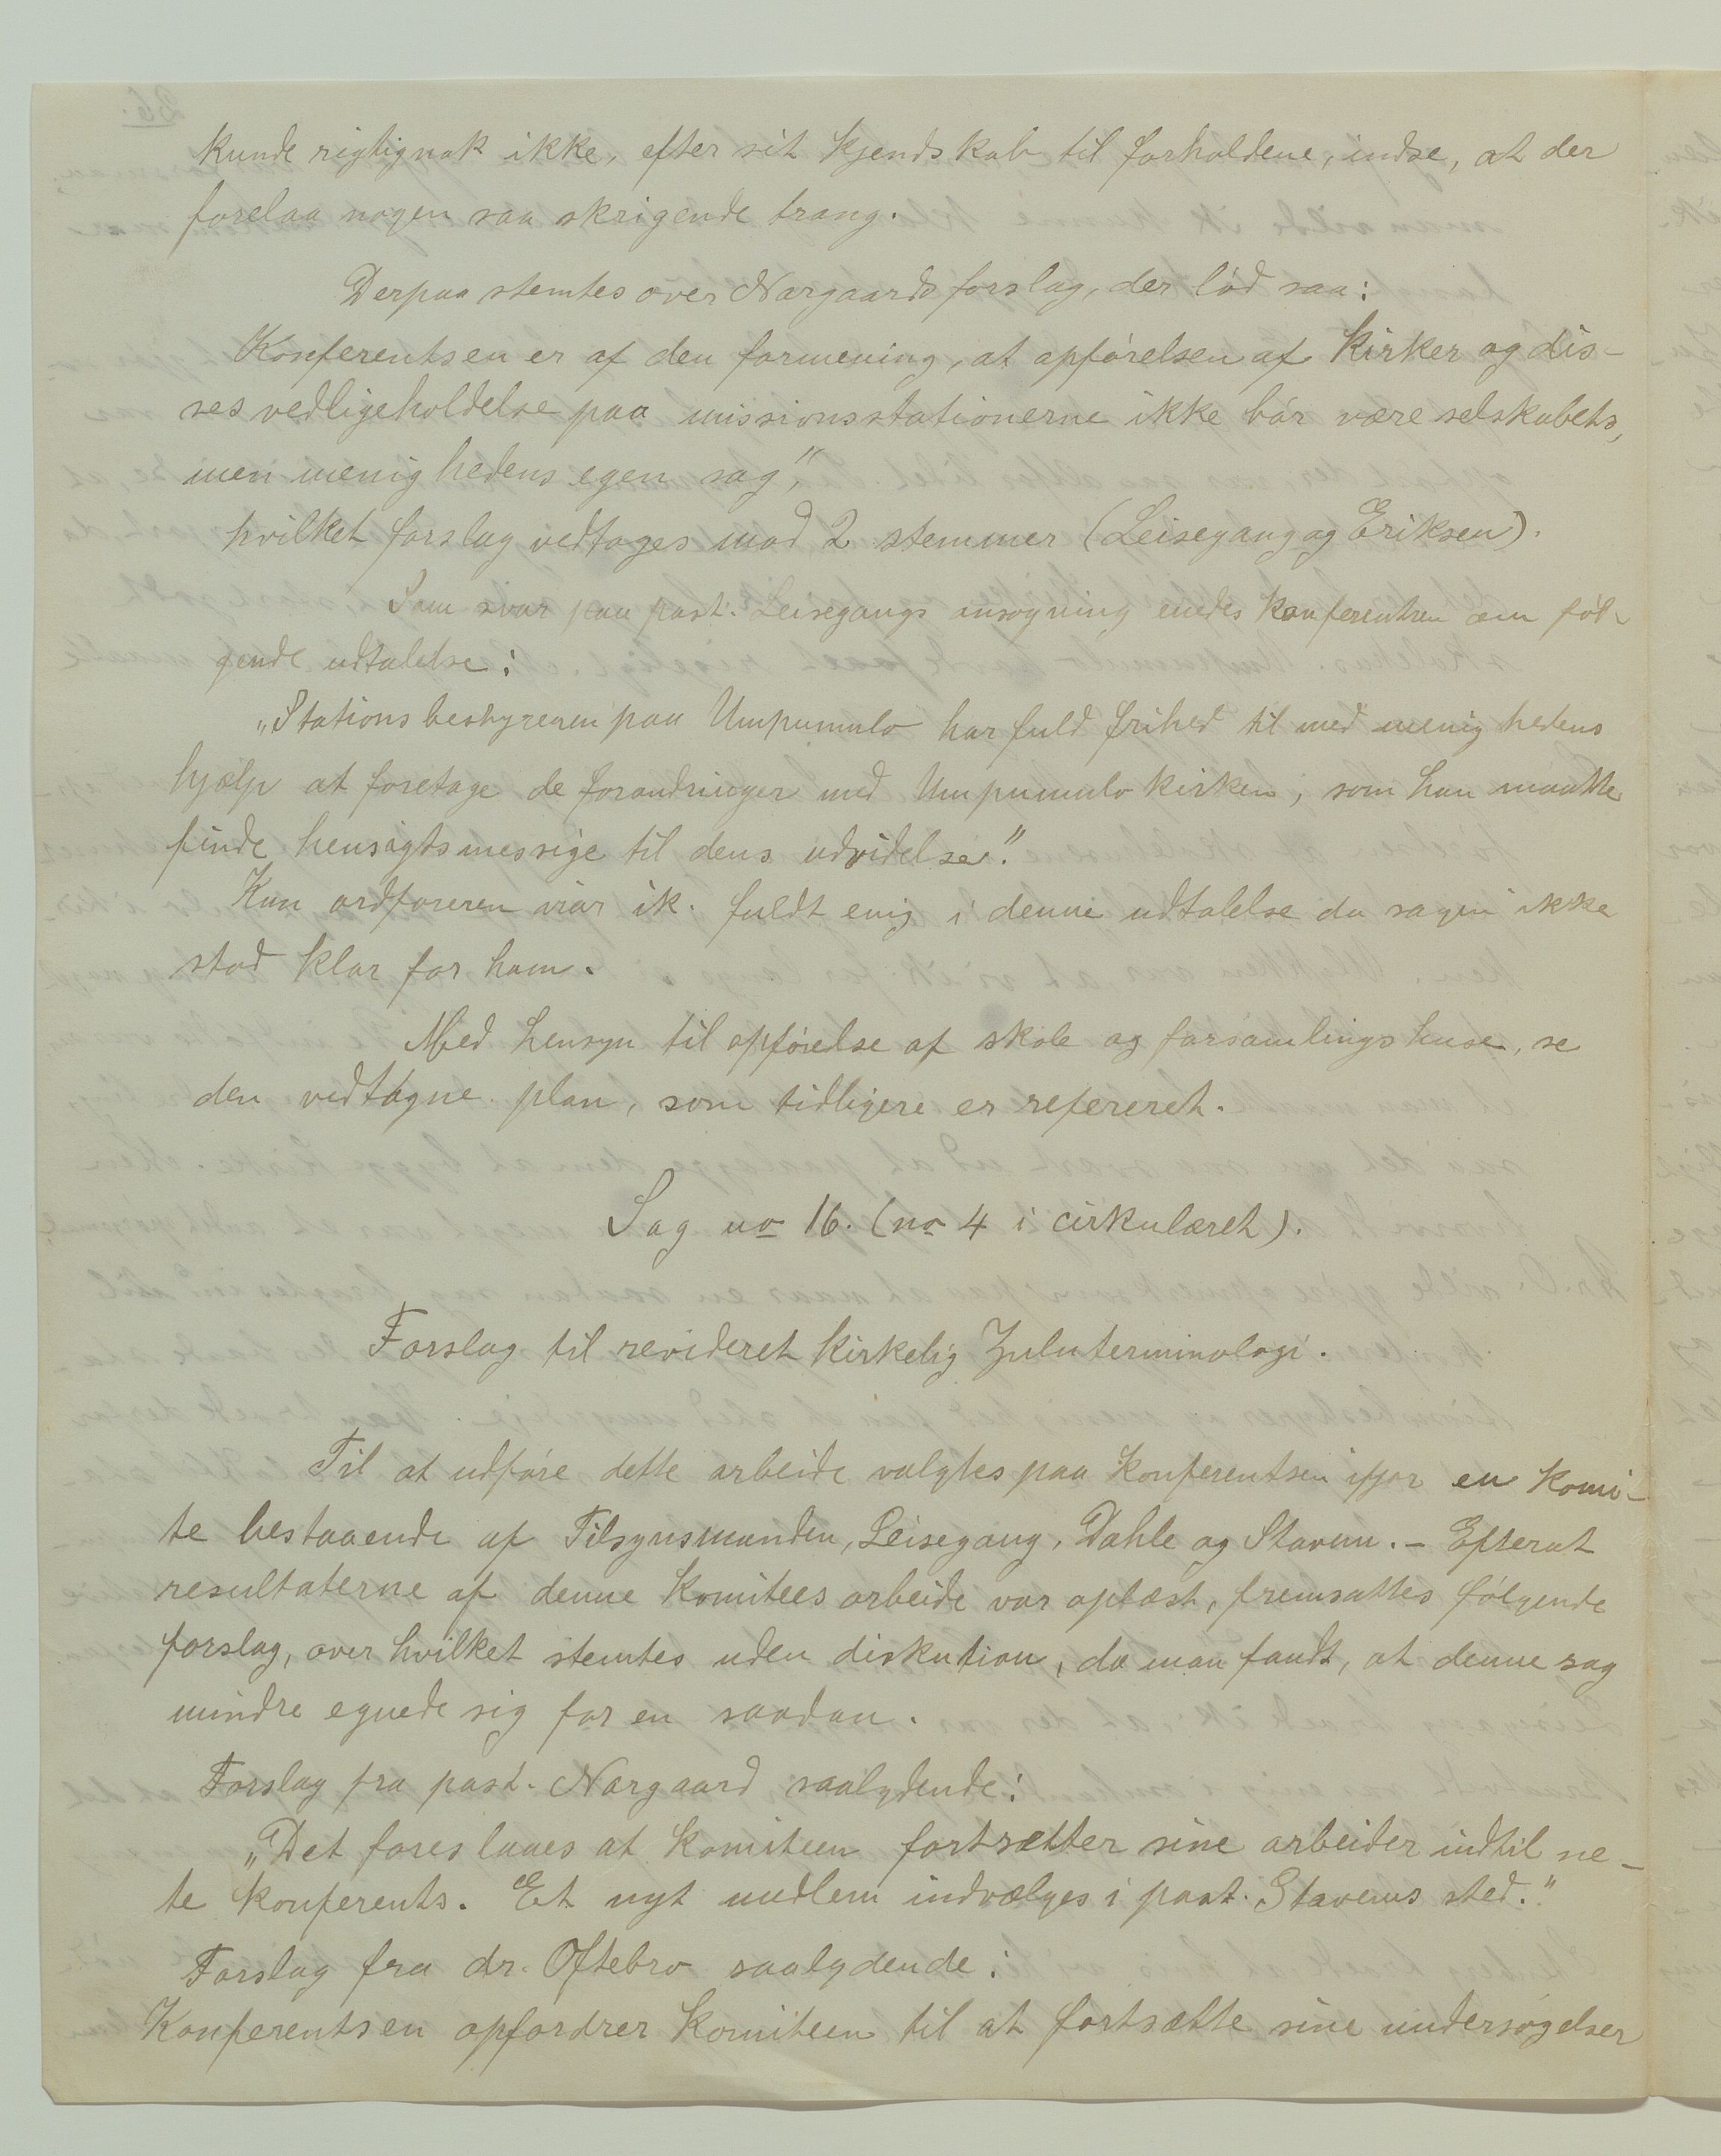 kunde rigtignok ikke, efter sit kjendskab til forholdene, indse, at der
forelaa nogen saa skrigende trang.
Derpaa stemtes over Norgaards forslag, der lød saa:
Konferentsen er af den formening, at opførelsen af kirker og dis-
ses vedligeholdelse paa missionsstationerne ikke bør være selskabets,
men menighedens egen sag",
hvilket forslag vedtoges mod 2 stemmer (Leisegang og Eriksen).
Som svar paa past. Leisegangs ansøgning enedes konferentsen om føl-
gende udtalelse:
„Stationsbestyreren paa Umpumulo har fuld frihed til med menighedens
hjælp at foretage de forandringer med Umpumulo kirken, som han maatte
finde hensigtsmessige til dens udvidelse."
Kun ordføreren var ik. fuldt enig i denne udtalelse da sagen ikke
stod klar for ham.
Med hensyn til opførelse af skole og forsamlingshuse, se
den vedtagne plan, som tidligere er refereret.
Sag no 16. (no 4 i cirkulæret).
Forslag til revideret kirkelig Zuluterminologi.
Til at udføre dette arbeide valgtes paa konferentsen ifjor en komi-
te bestaaende af Tilsynsmanden, Leisegang, Dahle og Stavem. - Efterat
resultaterne af denne komitees arbeide var oplæst, fremsattes følgende
forslag, over hvilket stemtes uden diskution, da man fandt, at denne sag
mindre egnede sig for en saadan.
Forslag fra past. Norgaard saalydende:
„Det foreslaaes at komiteen fortsætter sine arbeider indtil ne-
te konferents. Et nyt medlem indvælges i past. Stavems sted."
Forslag fra dr. Oftebro saalydende:
Konferentsen opfordrer komiteen til at fortsætte sine undersøgelser